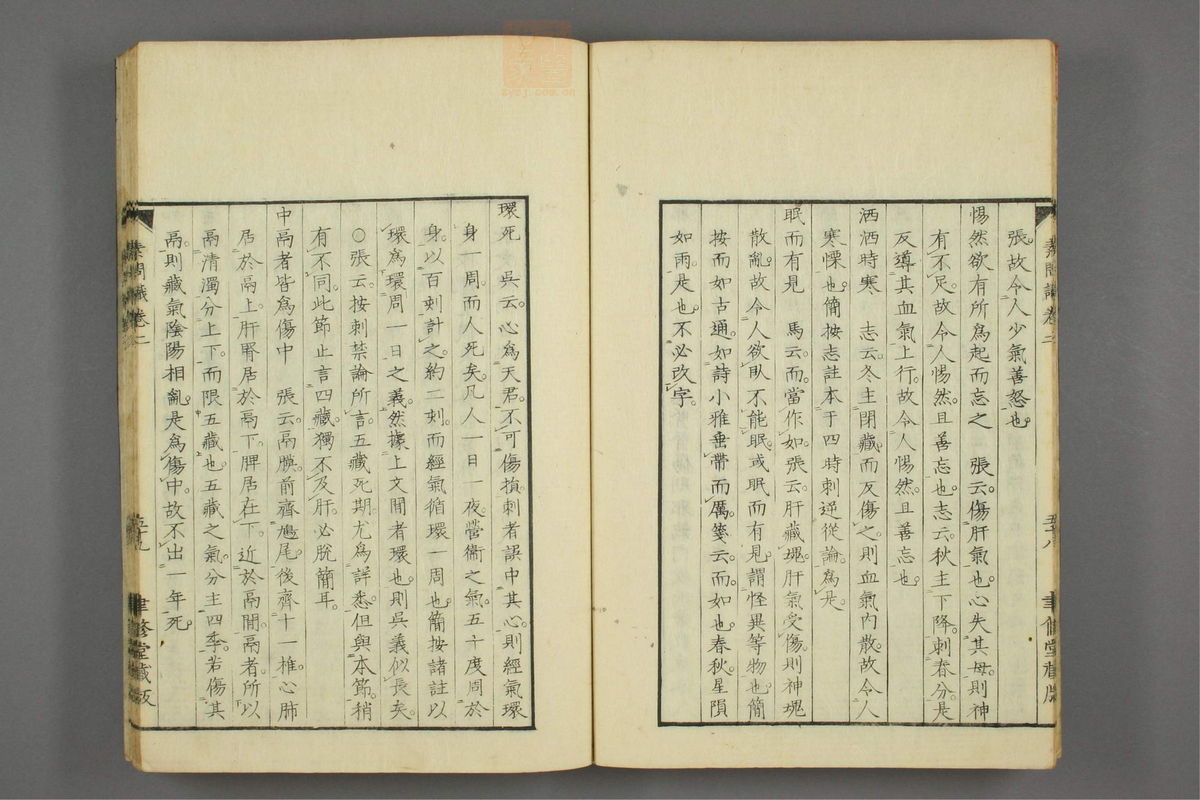 張故令人少氣善怒也
惕然欲有所爲起而忘之　張云傷肝氣也心失其母則神
有不足故令人惕然且善忘也志云秋主下降刺春分是
反導其血氣上行故令人惕然且善忘也
洒洒時寒　志云冬主閉藏而反傷之則血氣內散故令人
寒慄也簡按志註本于四時刺逆從論爲是
眠而有見　馬云而當作如張云肝藏魂肝氣受傷則神魂
散亂故令人欲臥不能眠或眠而有見謂怪異等物也簡
按而如古通如詩小雅垂帶而厲箋云而如也春秋星隕
如雨是也不必改字
素問識卷二
五十八
聿修堂
環死　吳云心爲天君不可傷損刺者誤中其心則經氣環
身一周而人死矣凡人一日一夜營衞之氣五十度周於
身以百刻計之約二刻而經氣循環一周也簡按諸註以
環爲環周一日之義然據上文聞者環也則吳義似長矣
○張云按刺禁論所言五藏死期尤爲詳悉但與本節稍
有不同此節止言四藏獨不及肝必脫簡耳
中鬲者皆爲傷中　張云鬲膜前齊鳩尾後齊十一椎心肺
居於鬲上肝腎居於鬲下脾居在下近於鬲間鬲者所以
鬲清濁分上下而限五藏也五藏之氣分主四季若傷其
鬲則藏氣陰陽相亂是爲傷中故不出一年死
素問識卷二
五十九
聿修堂藏版
zysj.com.cn